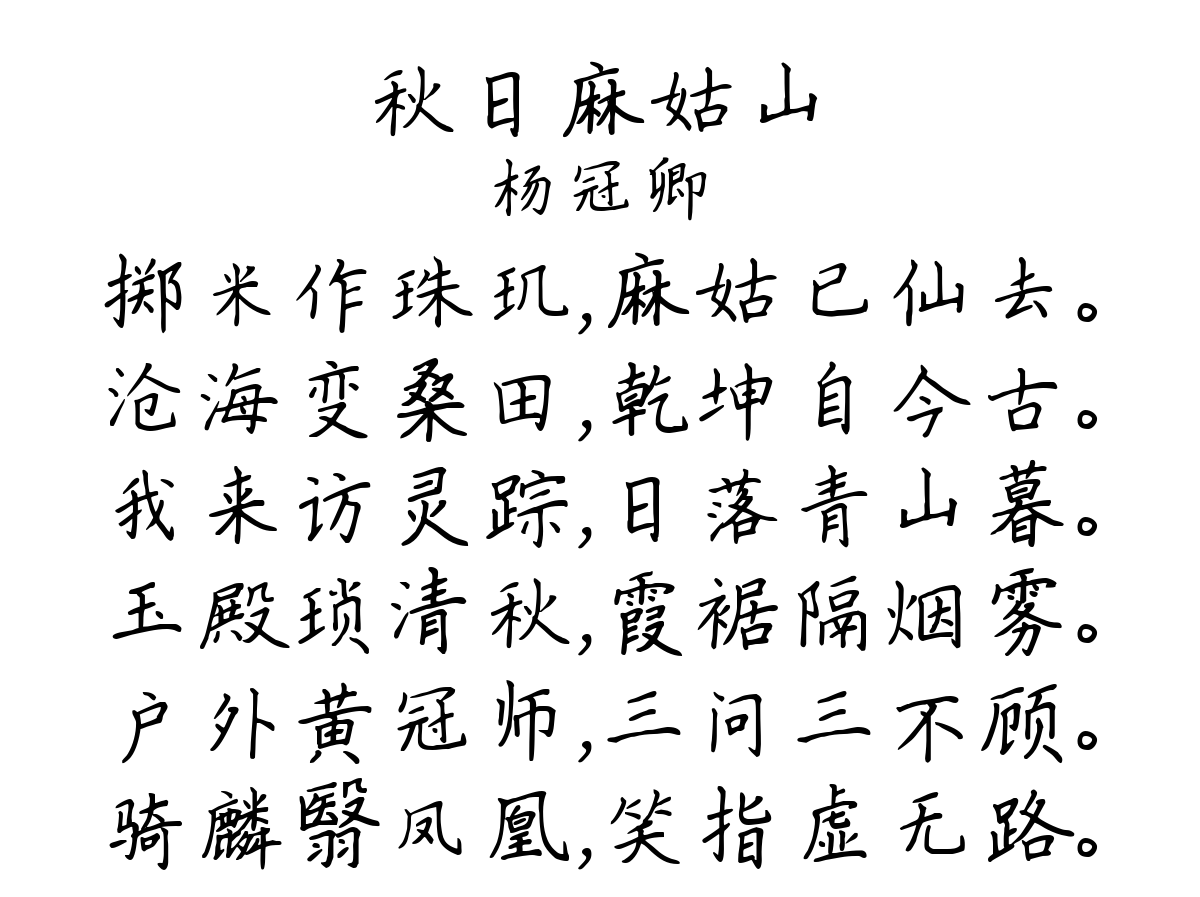 秋日麻姑山
杨冠卿
掷米作珠玑,麻姑已仙去。
沧海变桑田,乾坤自今古。
我来访灵踪,日落青山暮。
玉殿琐清秋,霞裾隔烟雾。
户外黄冠师,三问三不顾。
骑麟翳凤凰,笑指虚无路。